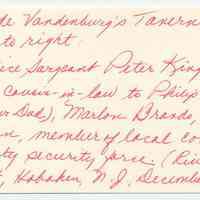 de Vandenburg's Tavern
to right.
ice Sargeant Peter King
cousin-in-law to Philip
ur Dad), Marlon Brando,
n, member of local co
ty security force. (Riv
, Hoboken, N.J, Decemb